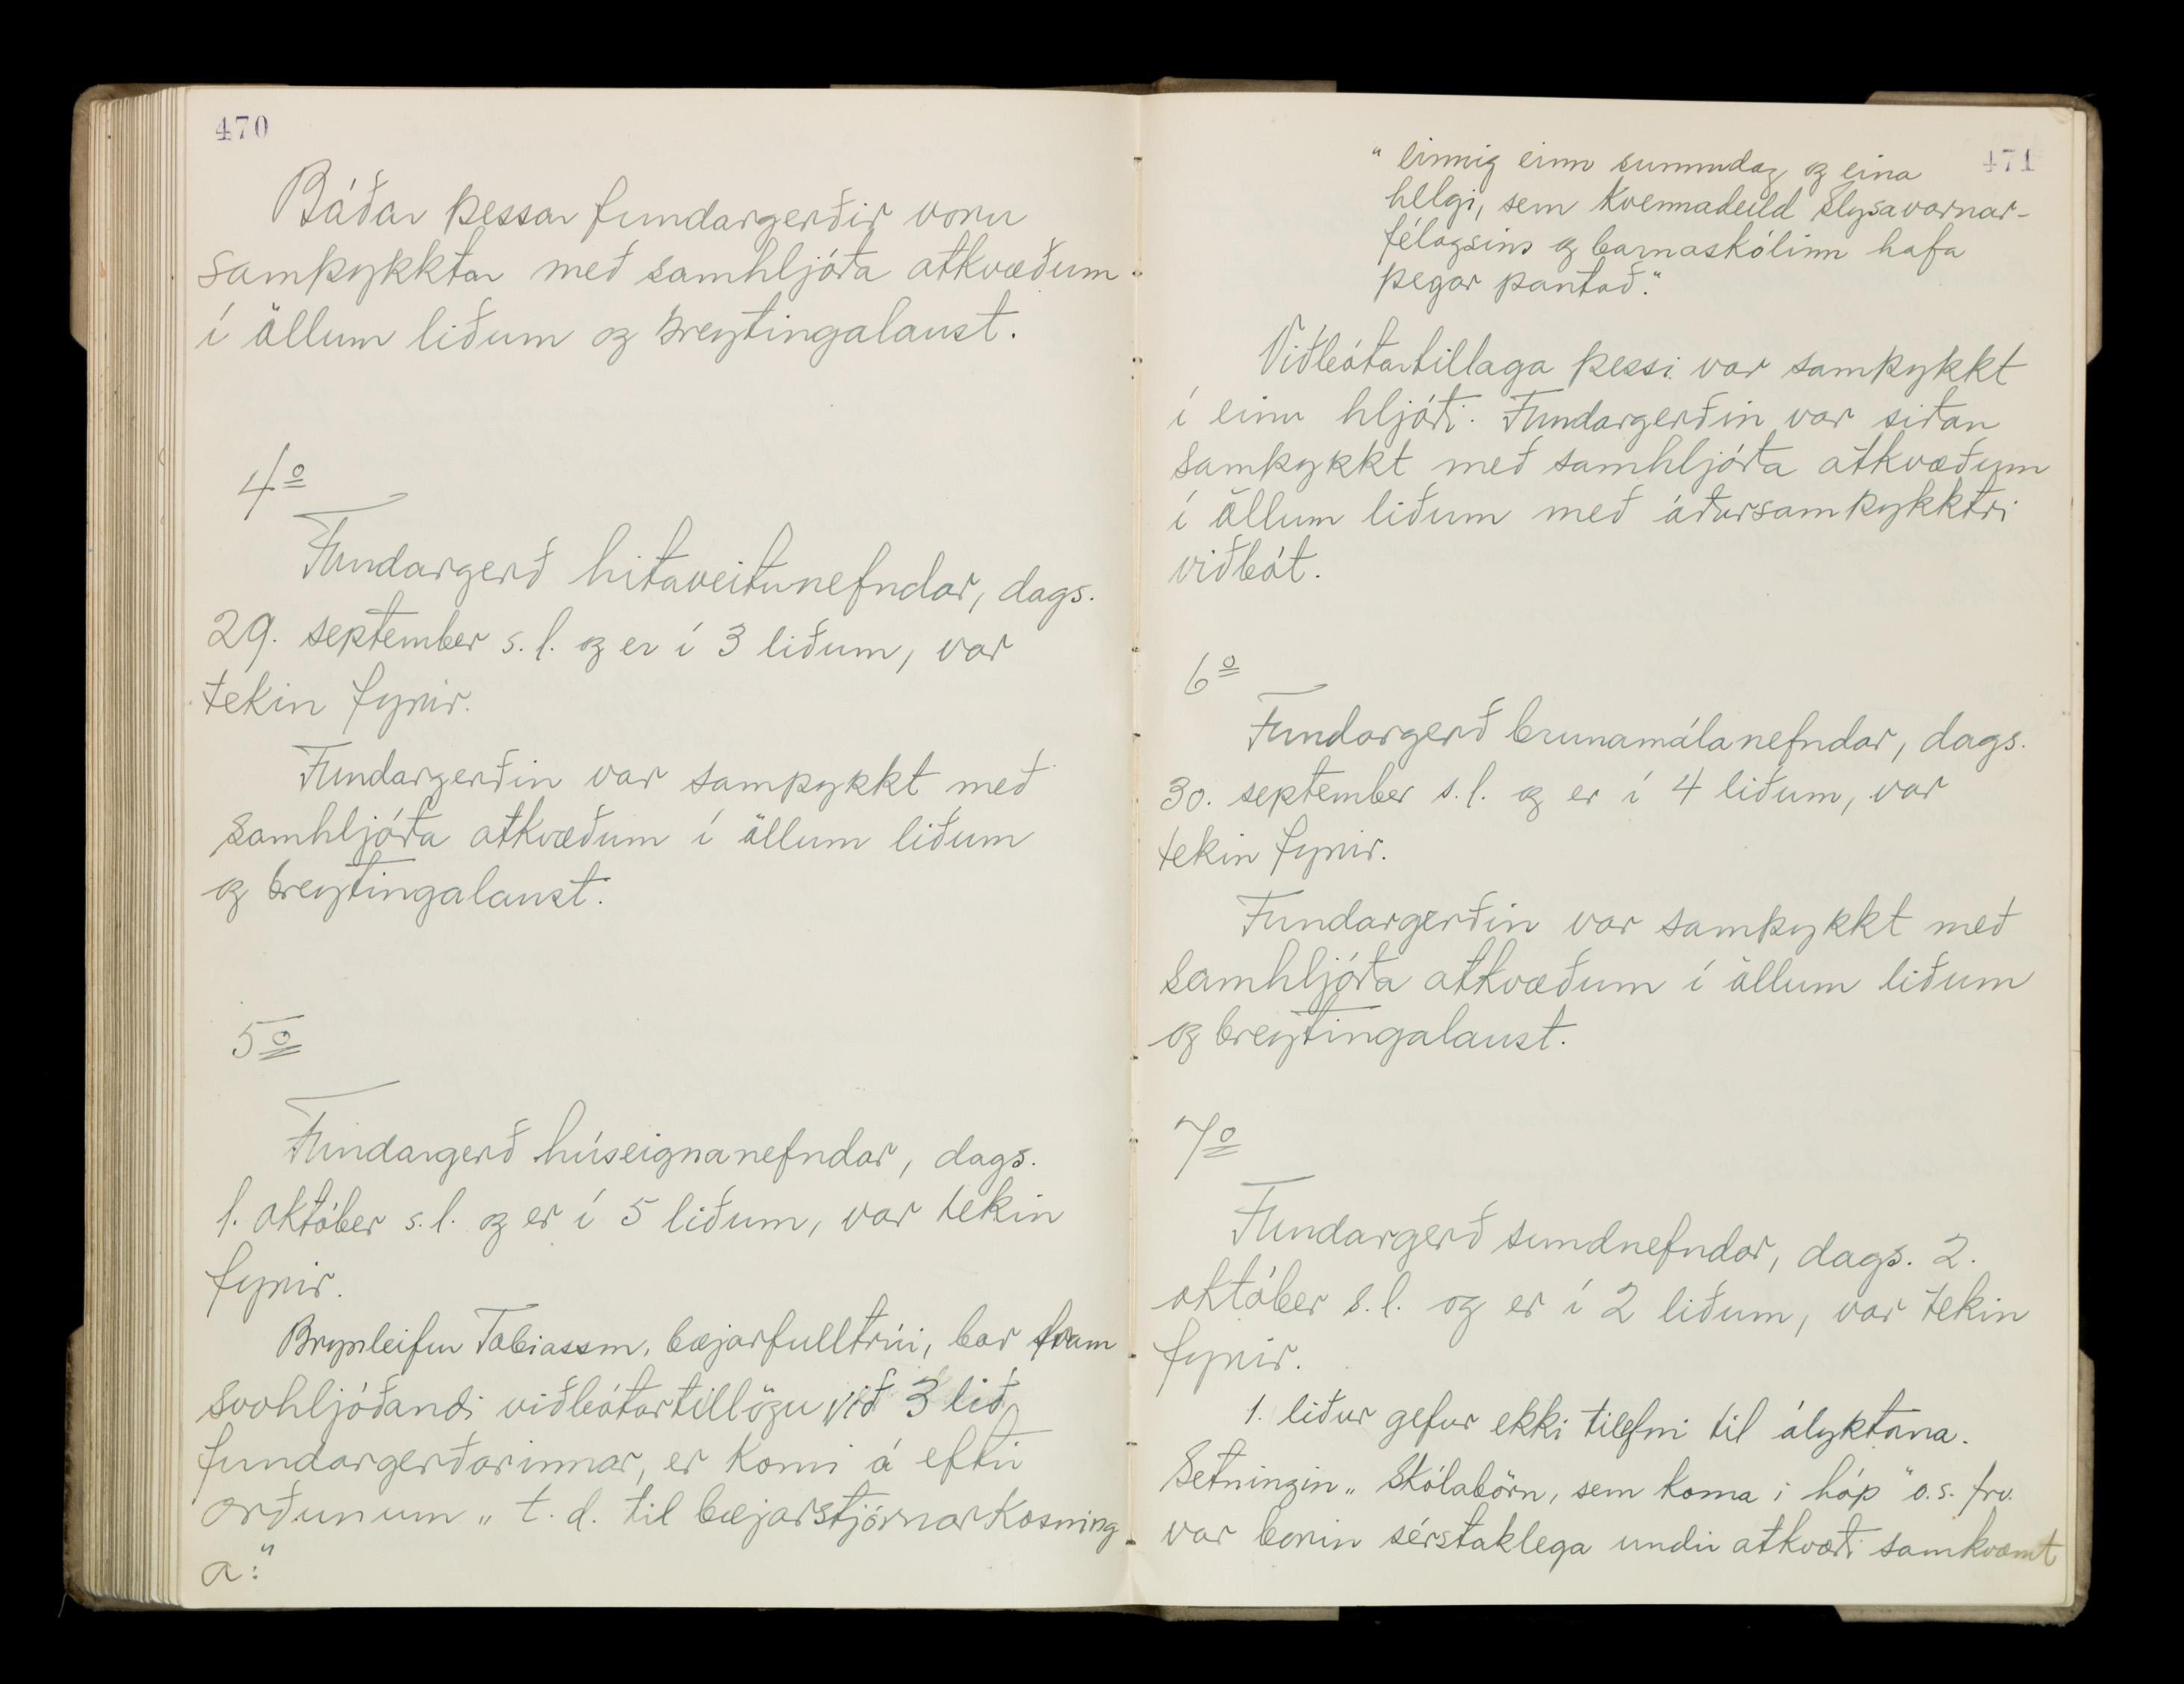 470
Báðar þessar fundargerðir voru
samþykktar með samhljóða atkvæðum
í öllum liðum og breytingalaust.
4º
Fundargerð hitaveitunefndar, dags.
29. september s.l. og er í 3 liðum, var
tekin fyrir.
Fundargerðin var samþykkt með
samhljóða atkvæðum í öllum liðum
og breytingalaust.
5º
Fundargerð húseignanefndar, dags.
1. október s.l. og er í 5 liðum, var tekin
fyrir.
Brynleifur Tobiasson, bæjarfulltrúi, bar fram
svohljóðandi viðbótartillögu við 3 lið
fundargerðarinnar, er komi á eftir
orðunum „t.d. til bæjarstjórnarkosning
a:"
471
„einnig einn sunnudag og eina
helgi, sem Kvennadeild Slysavarnar-
félagsins og barnaskólinn hafa
þegar pantað."
Viðbótartillaga þessi var samþykkt
í einu hljóði. Fundargerðin var síðan
samþykkt með samhljóða atkvæðum
í öllum liðum með áðursamþykktri
viðbót.
6º
Fundargerð brunamálanefndar, dags.
30. september s.l. og er í 4 liðum, var
tekin fyrir.
Fundargerðin var samþykkt með
samhljóða atkvæðum í öllum liðum
og breytingalaust.
7º
Fundargerð sundnefndar, dags. 2.
október s.l. og er í 2 liðum, var tekin
fyrir.
1. liður gefur ekki tilefni til ályktana.
Setningin „Skólabörn, sem koma i hóp" o.s.frv.
var borin sérstaklega undir atkvæði samkvæmt